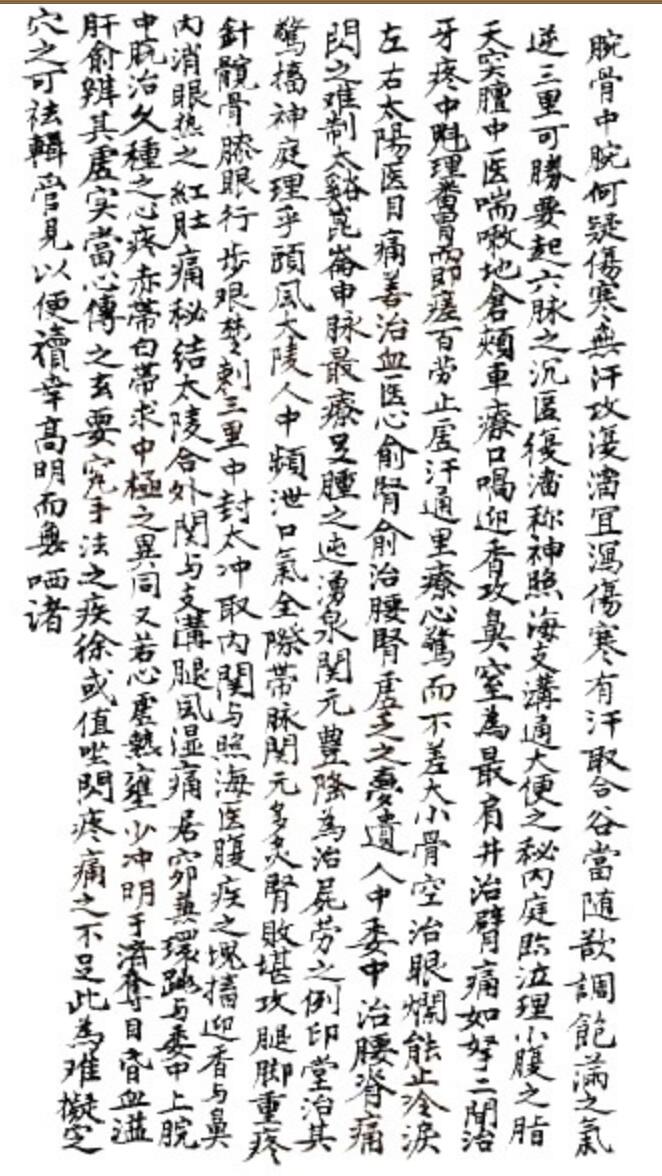 腕骨中脘何疑傷寒無汗攻復溜宜瀉傷寒有汗取合谷當随歆調飽满之氣
逆三里可勝要起六脉之沉匿復溜称神照海支溝通大便之秘内庭臨泣理小腹之脂
天突膻中医喘嗽地倉頰車療口喎迎香攻鼻窒為最肩井治臂痛如拏二間治
牙疼中魁理番胃而即瘥百劳止虚汗通里療心驚而不差大小骨空治眼爛能止冷淚
左右太陽医目痛善治血医心俞腎俞治腰腎虚乏之夢遺人中委中治腰脊痛
閃之难制太谿崑崙申脉最療足腫之迍湧泉関元豊隆為治屍劳之例印堂治其
驚搐神庭理乎頭風大陵人中頻泄口氣全除帶脉関元多灸腎敗堪攻腿脚重疼
針髖骨膝眼行步艰楚刺三里中封太冲取内関与照海医腹疾之塊搐迎香与鼻
内消眼热之紅肚痛秘结太陵合外関与支溝腿風湿痛居窌兼環跳与委中上脘
中脘治久種之心疼赤帶白帶求中極之異同又若心虚熱壅少冲明于濟奪目昏血溢
肝俞辨其虚实當心傳之玄要究手法之疾徐或值坐閃疼痛之不足此為难擬定
穴之可祛輯管見以便讀幸高明而無哂诸